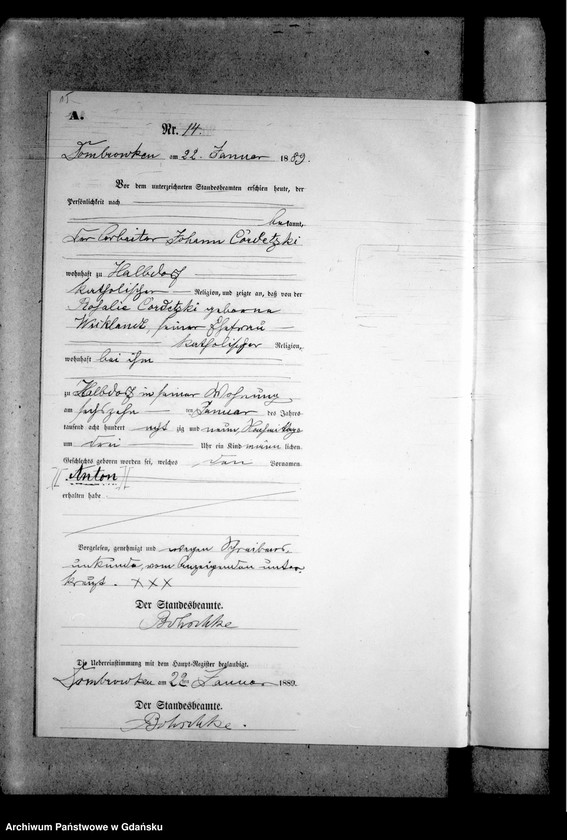 A.
Nr. 14.
Dombrowken am 22. Januar 1889.
Vor dem unterzeichneten Standesbeamten erschien heute, der
Persönlichkeit nach
bekannt,
der Arbeiter Johann Cordetzki
wohnhaft zu Halbdorf
katholischer Religion, und zeigte an, daß von der
Rosalie Cordetzki geborene
seiner Ehefrau
katholischer Religion,
wohnhaft bei ihm
zu Halbdorf in seiner Wohnung
am sechszehn ten Januar des Jahres
tausend acht hundert acht zig und neun, Nachmittags
um drei Uhr ein Kind männlichen
Geschlechts geboren worden sei, welches den Vornamen
Anton
erhalten habe
Vorgelesen, genehmigt und wegen Schreibens-
unkunde vom Anzeigenden unter-
kreuzt. XXX
Der Standesbeamte.
Bohschke
Die Uebereinstimmung mit dem Haupt-Register beglaubigt.
Dombrowken am 22ten Januar 1889.
Der Standesbeamte.
Bohschke.
Archiwum Państwowe w Gdańsku